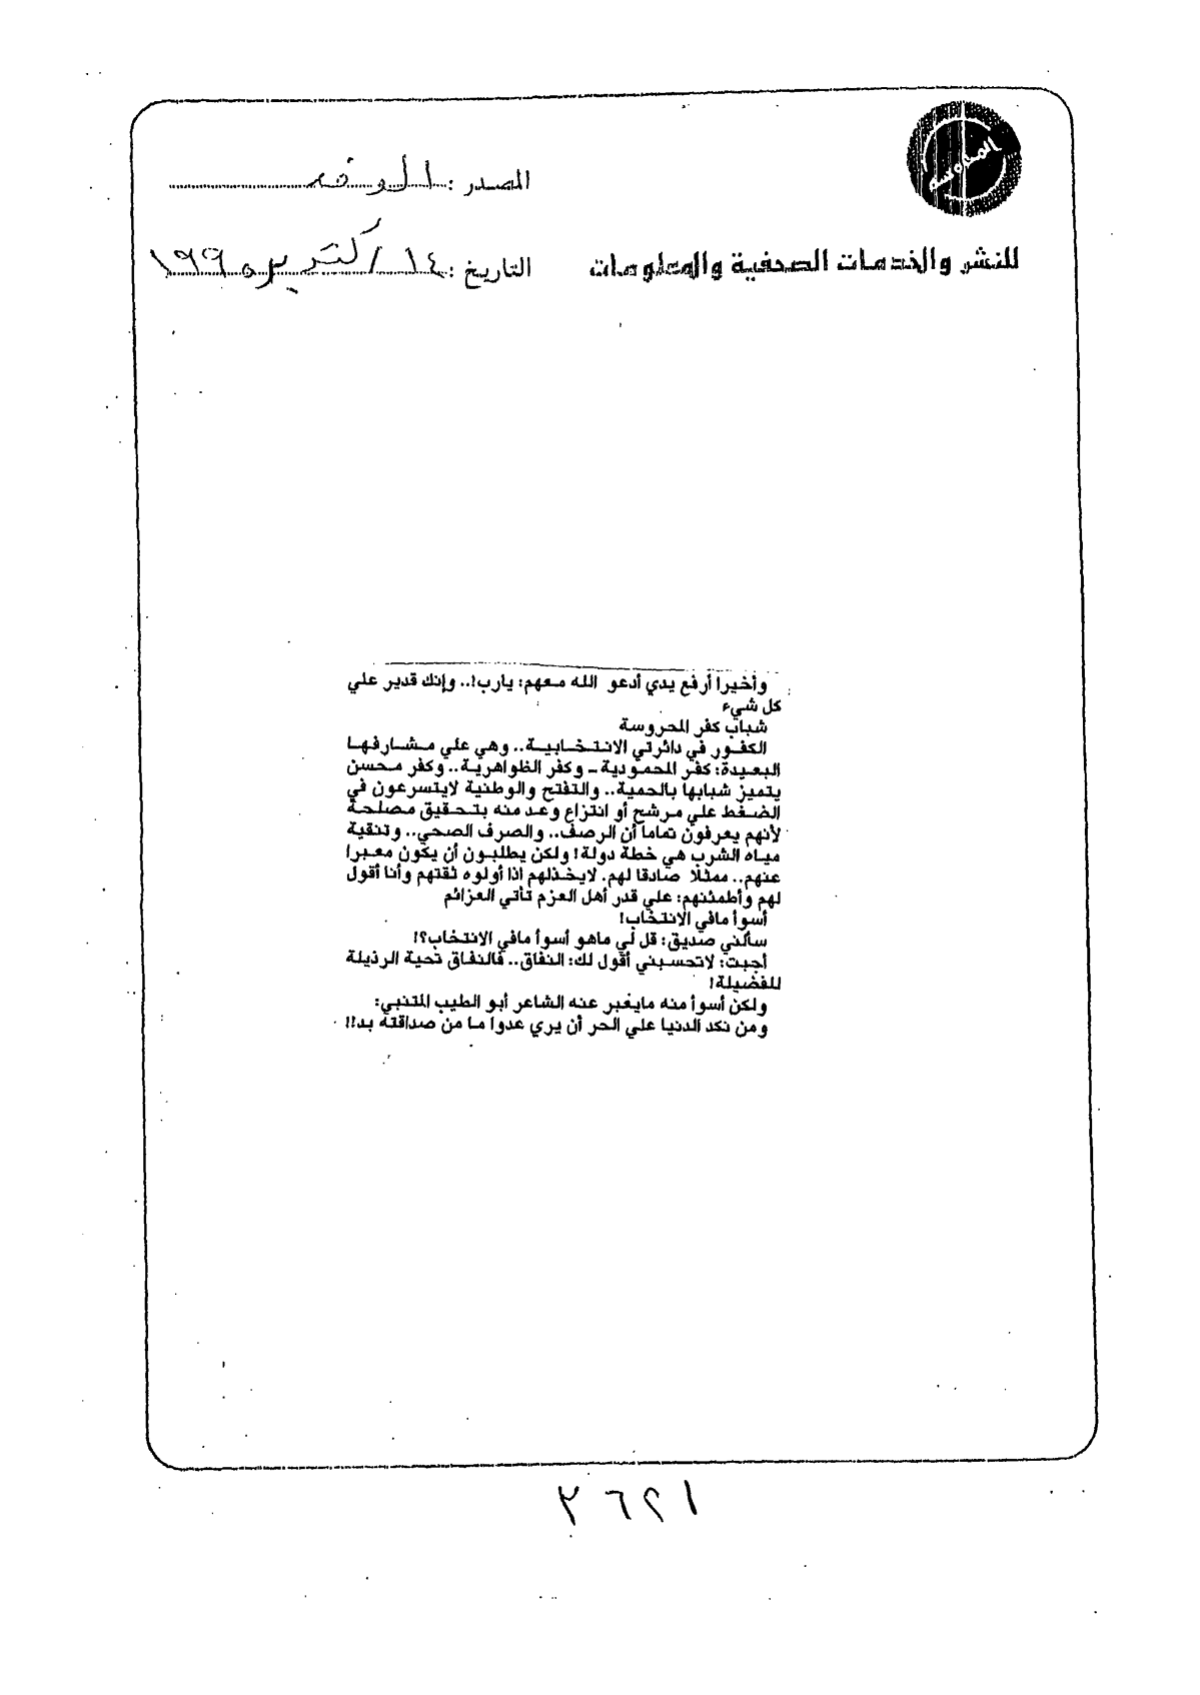 المحروسة
المصدر : الوفد
للنشر والخدمات الصحفية والمعلومات
التاريخ : ١٤ أكتوبر ١٩٩٥
وأخيرا أرفع يدي أدعو الله معهم: يارب!.. وإنك قدير علي
كل شيء
شباب كفر المحروسة
الكفور في دائرتي الانتخابية.. وهي علي مشارفها
البعيدة: كفر المحمودية ـ وكفر الظواهرية.. وكفر محسن
يتميز شبابها بالحمية.. والتفتح والوطنية لايتسرعون في
الضغط علي مرشح أو انتزاع وعد منه بتحقيق مصلحة
لأنهم يعرفون تماما أن الرصف.. والصرف الصحي.. وتنقية
مياه الشرب هي خطة دولة! ولكن يطلبون أن يكون معبرا
عنهم.. ممثلا صادقا لهم. لايخذلهم اذا أولوه ثقتهم وأنا أقول
لهم وأطمئنهم: علي قدر أهل العزم تأتي العزائم
أسوأ مافي الانتخاب!
سألني صديق: قل لي ماهو أسوأ مافي الانتخاب؟!
أجبت: لاتحسبني أقول لك: النفاق.. فالنفاق تحية الرذيلة
للفضيلة!
ولكن أسوأ منه مايعبر عنه الشاعر أبو الطيب المتنبي:
ومن نكد الدنيا علي الحر أن يري عدوا ما من صداقته بد!!